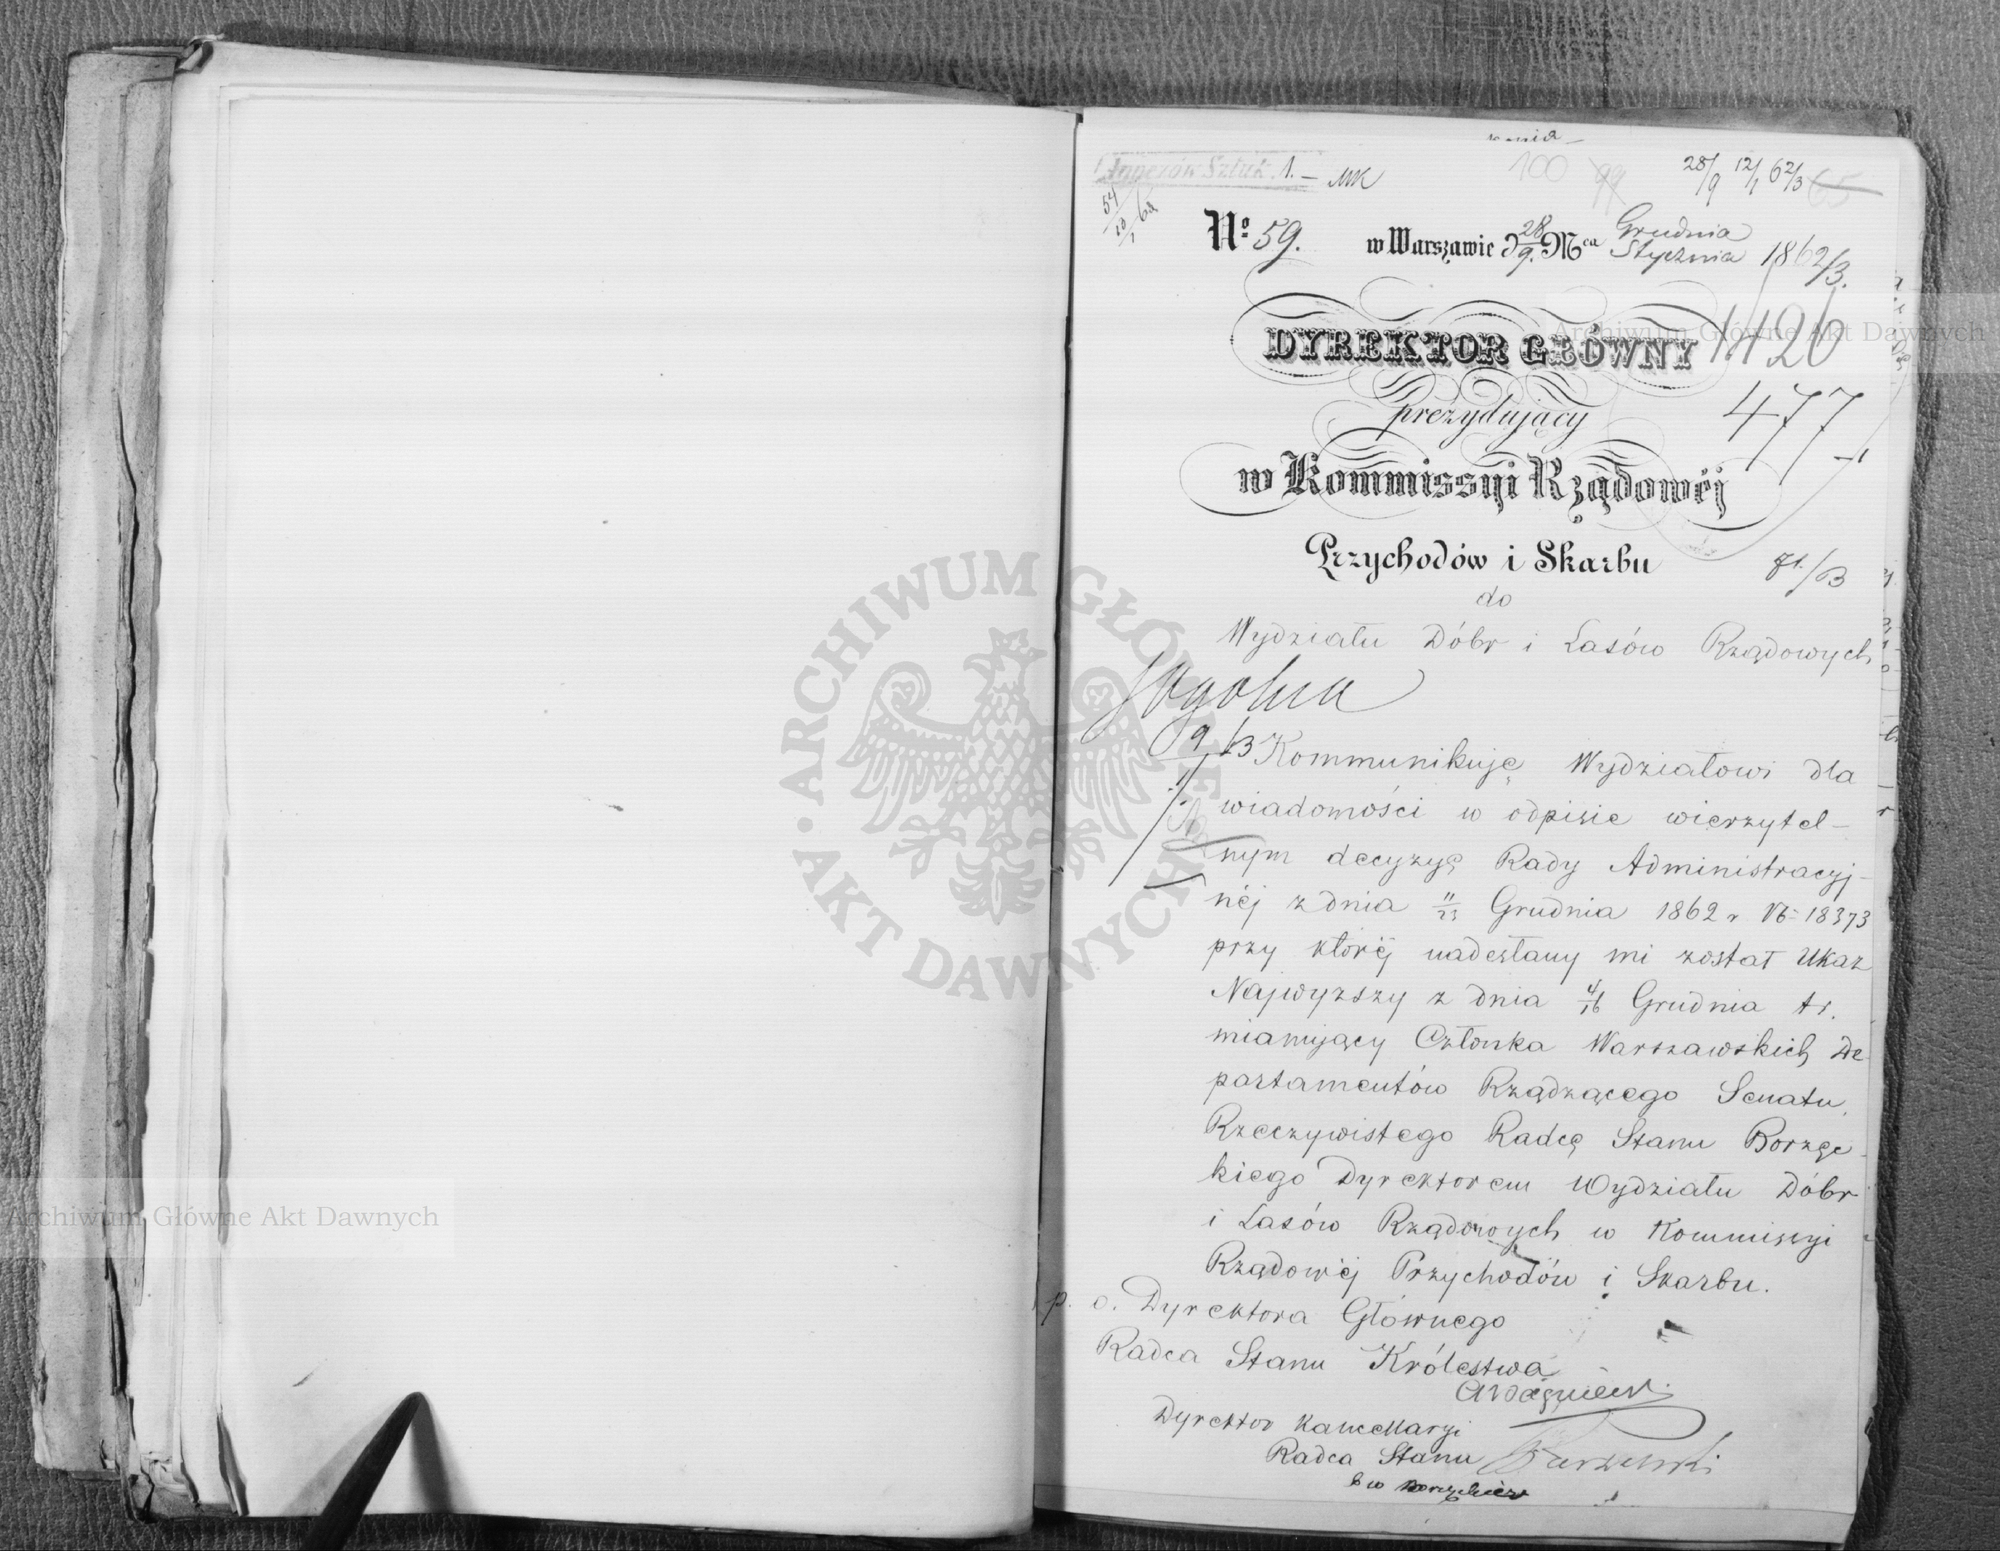 Annexów Sztuk 1. — MK
100 99 28/9 12/1 62/3 65
54
10/1 63
No 59. w Warszawie d 28/9. Mca Grudnia/Stycznia 1862/3.
DYREKTOR GŁÓWNY
1126
prezydujący
477
w Kommissyi Rządowéj
Przychodów i Skarbu
71/B
do
Wydziału Dóbr i Lasów Rządowych
9/13
Kommunikuję Wydziałowi dla
wiadomości w odpisie wierzytel-
nym decyzyę Rady Administracyj-
néj z dnia 11/23 Grudnia 1862 r No 18373
przy któréj nadesłany mi został Ukaz
Najwyższy z dnia 4/16 Grudnia t.r.
mianujący Członka Warszawskich De
partamentów Rządzącego Senatu,
Rzeczywistego Radcę Stanu Borzęc-
kiego Dyrektorem Wydziału Dóbr
i Lasów Rządowych w Kommissyi
Rządowéj Przychodów i Skarbu.
p. o. Dyrektora Głównego
Radca Stanu Królestwa
Dyrektor Kancellaryi
Radca Stanu
ARCHIWUM GŁÓWNE AKT DAWNYCH
Archiwum Główne Akt Dawnych
Archiwum Główne Akt Dawnych